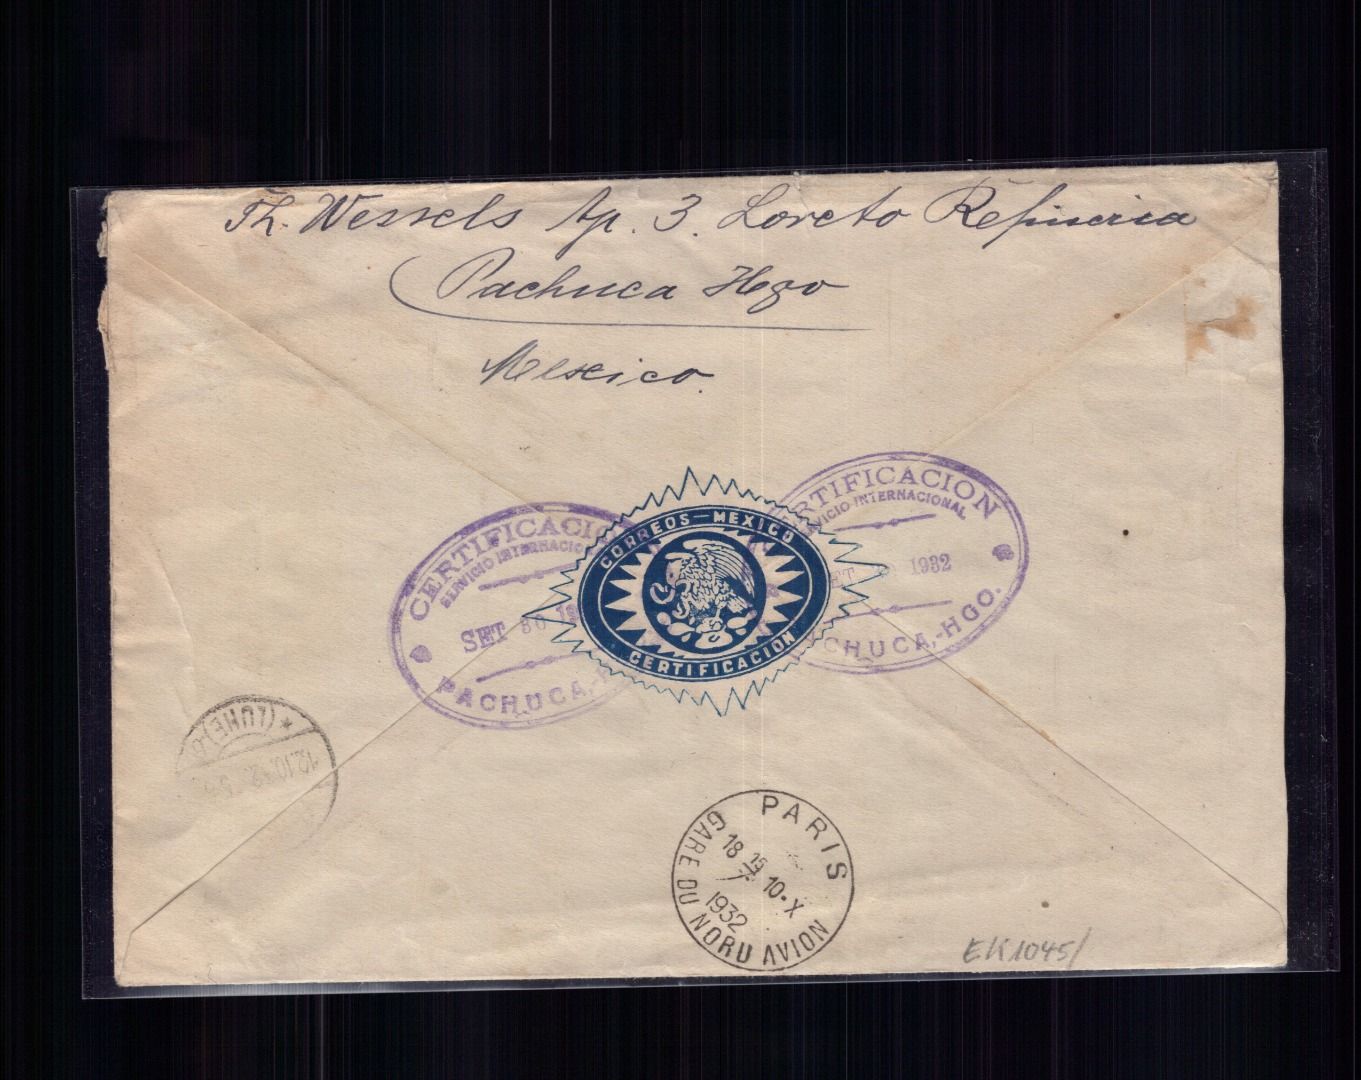 Th. Wessels Ap. 3. Loreto Refineria
Pachuca Hgo
Mexico.
CERTIFICACIO
SERVICIO INTERNACIO
SET 30 19
PACHUCA,-H
CORREOS-MEXICO
CERTIFICACION
ERTIFICACION
VICIO INTERNACIONAL
ET 1932
CHUCA,-HGO.
(LUHE)
12.10.32.
PARIS
18 15
10-X
1932
GARE DU NORD AVION
EK1045/